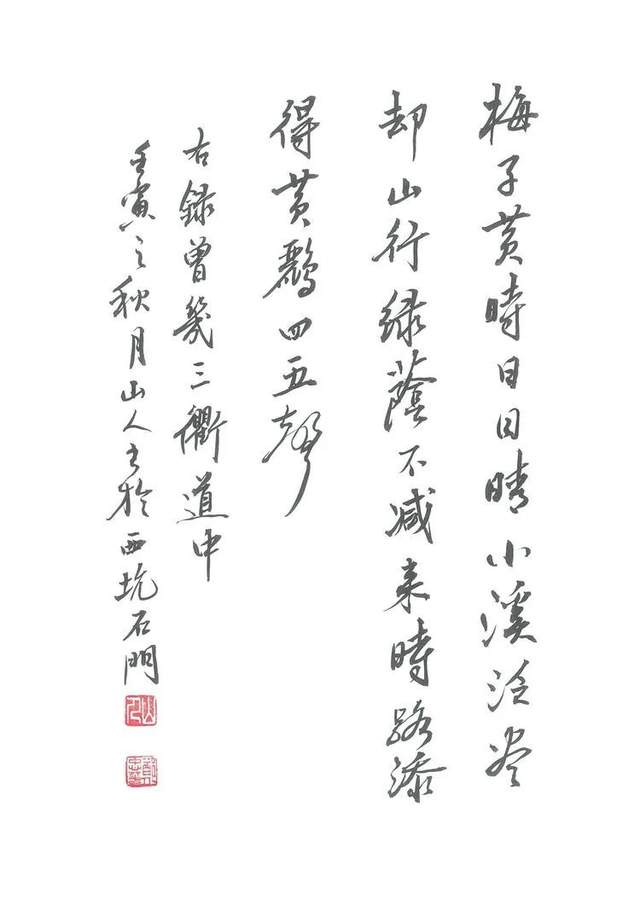 梅子黄時日日晴小溪泛尽
却山行绿蔭不减来時路添
得黄鸝四五聲
右録曾幾三衢道中
壬寅之秋月山人書於西坑石門